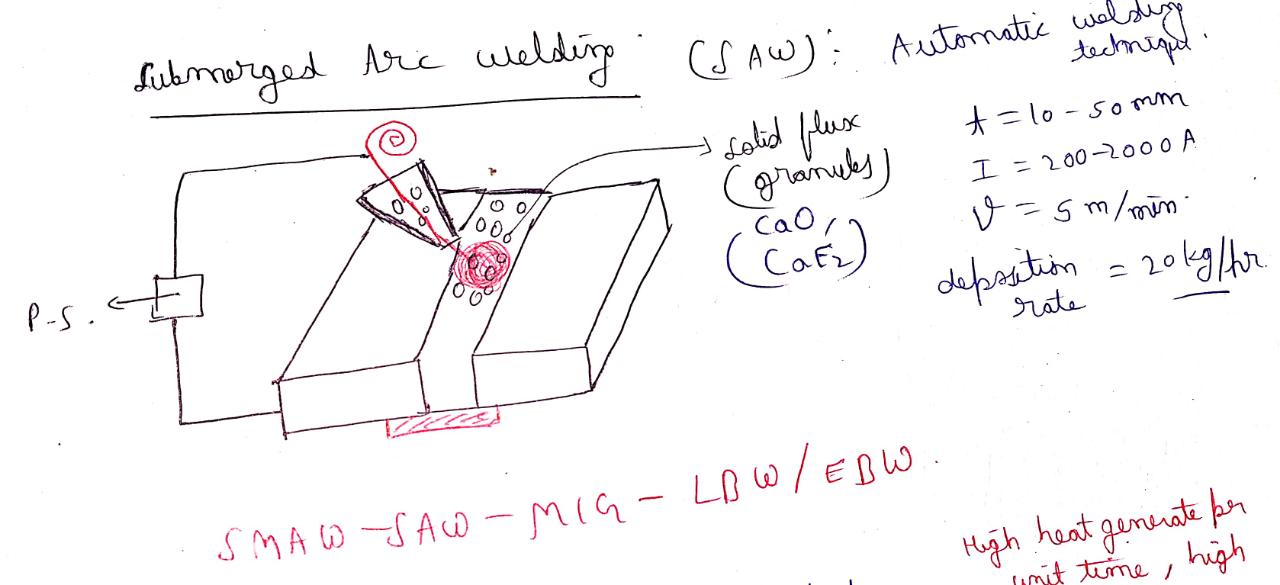 Submerged Arc welding (SAW): Automatic welding
technique.
solid flux
(granules)
(CaO,
CaF2)
t = 10 - 50 mm
I = 200-2000 A
V = 5 m/min.
deposition
rate = 20 kg/hr.
P.S.
SMAW - SAW - MIG - LBW / EBW.
High heat generate per
unit time, high